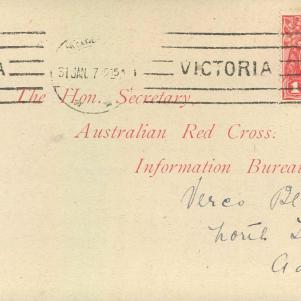 A
VICTORIA
1
The Hon. Secretary,
Australian Red Cross:
Information Burea
Verco B
North